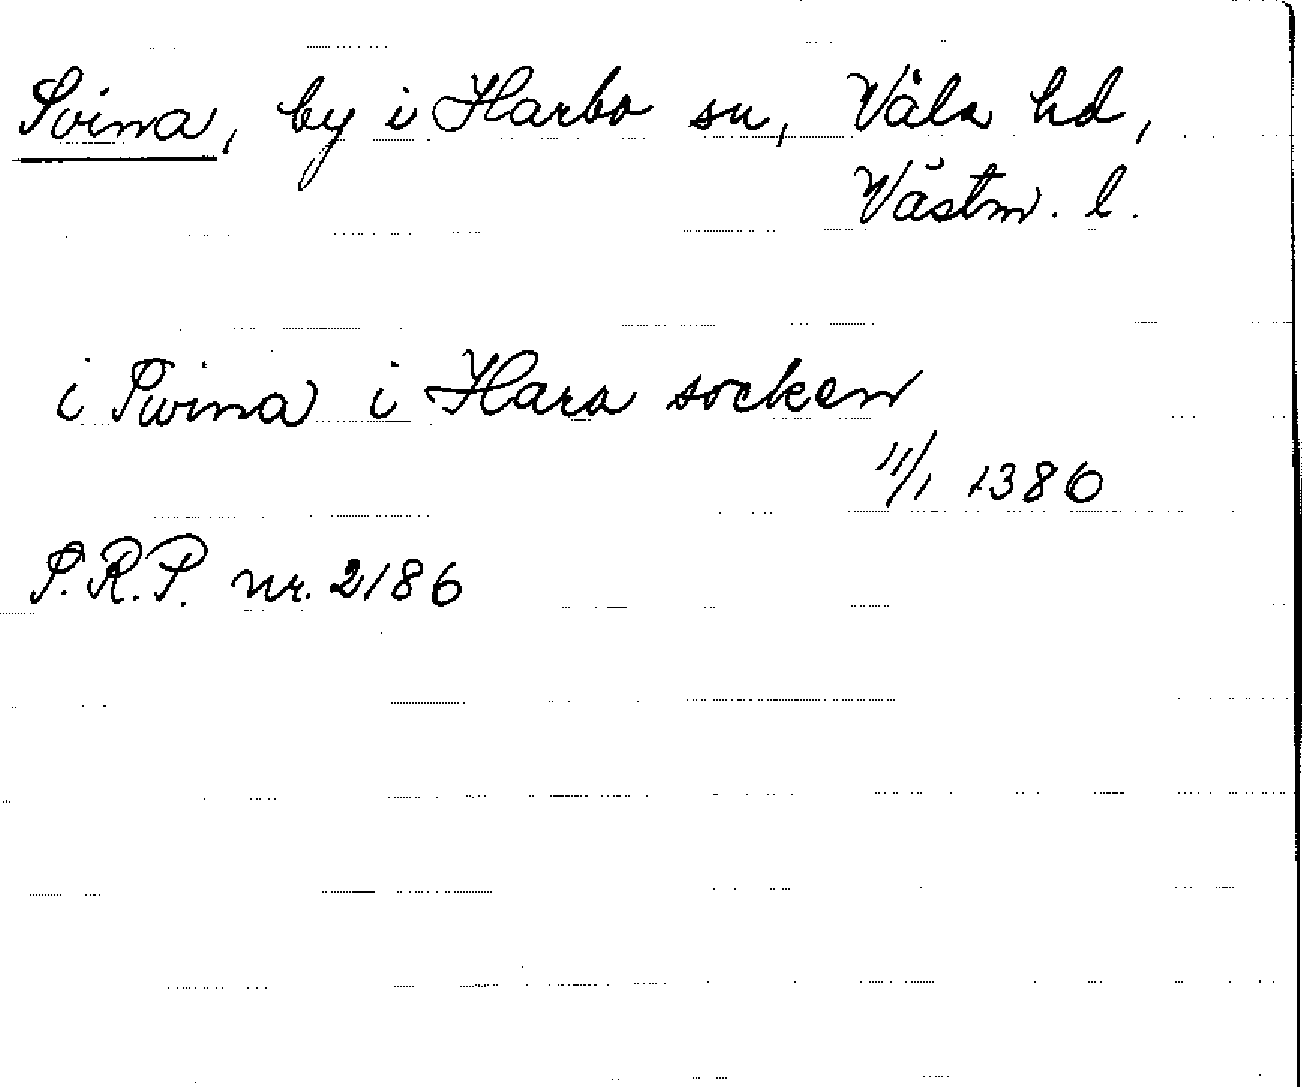 Svina, by i Harbo sn, Våla hd,
Västm. l.
i Swina i Hara socken
11/1 1386
S.R.P. nr. 2186